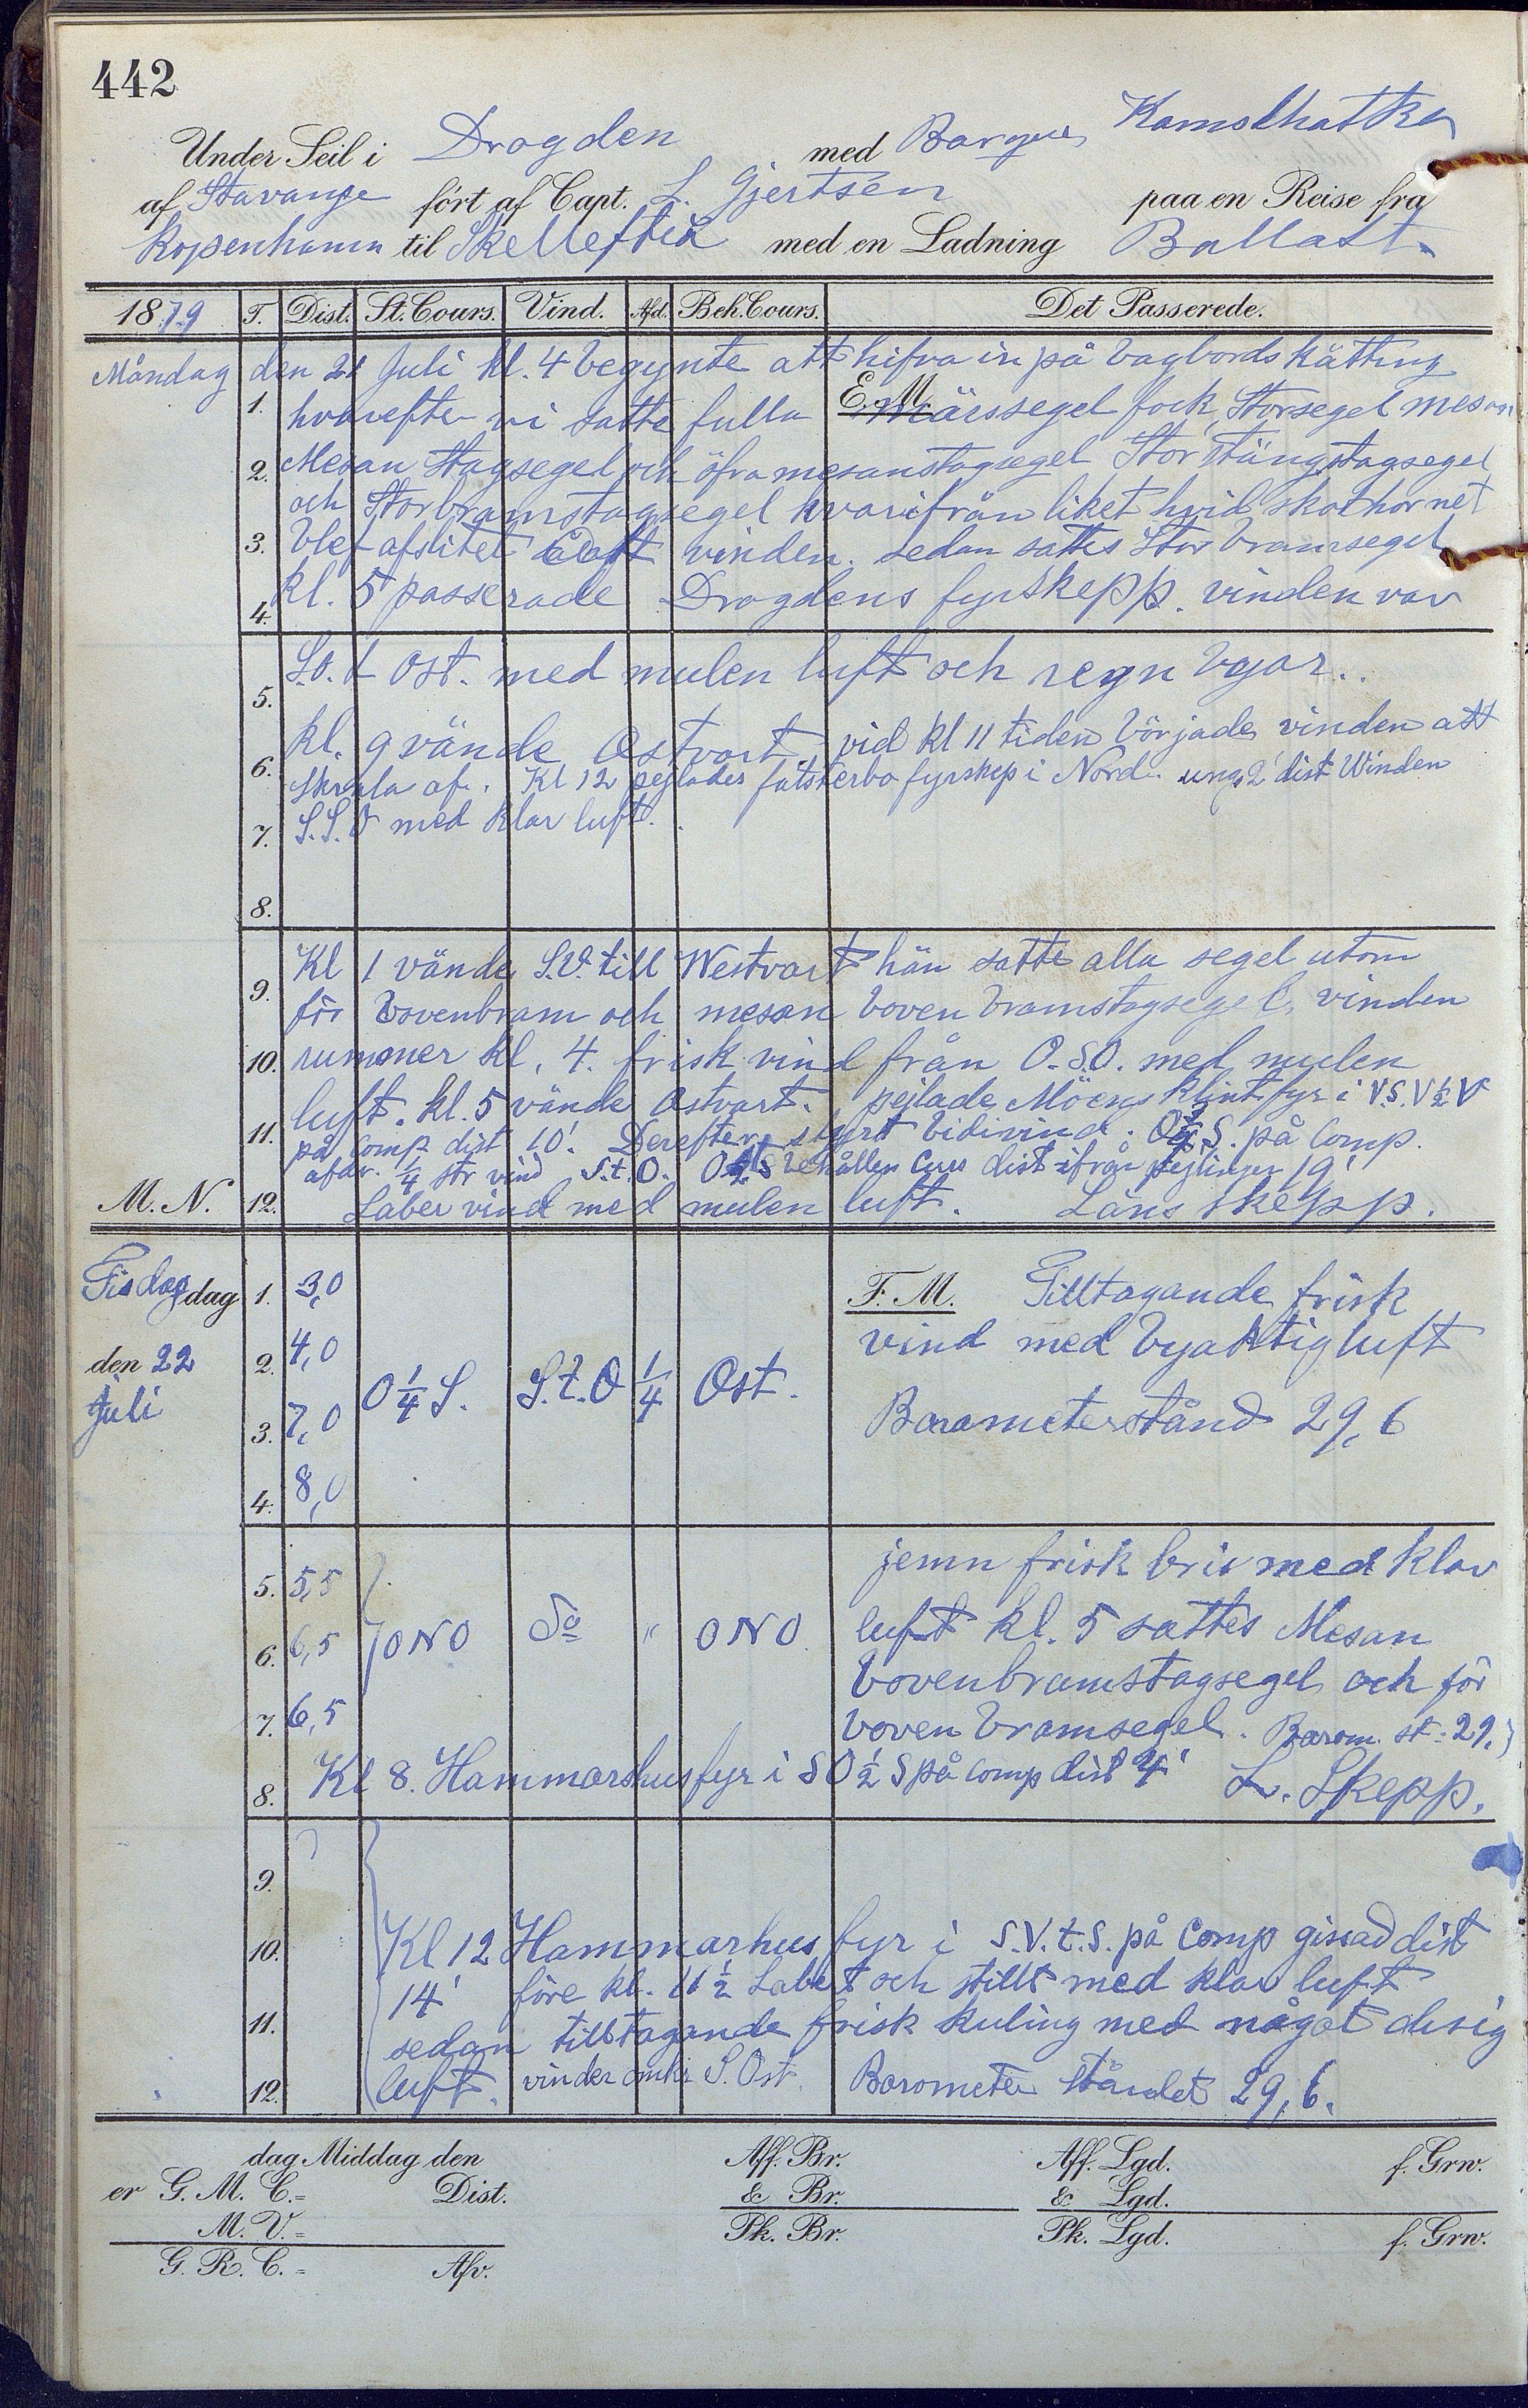 442
Under Seil i Drogden med Barque Kamschatka
af Stavange fört af Capt. L. Gjertsen paa en Reise fra
Kopenhamn til Skellefteå med en Ladning Ballast.
1879 T. Dist. St. Cours. Vind. Afd. Beh. Cours. Det Passerede.
Måndag den 21 Juli kl. 4 begynte att hifva in på bagbords kätting
E. M.
1. hvarefter vi satte fulla märssegel fock, Storsegel mesan
2. Mesan Stagsegel och öfra mesanstagsegel Storstängstagsegel
och Storbramstagsegel hvarifrån liket hvid skothornet
3. blef afslitet vinden. sedan sattes Stor bramsegel
4. kl. 5 passerade Drogdens fyrskepp. vinden var
5. S.O. t Ost. med mulen luft och regn byar..
6. kl. 9 vände Ostvart, vid kl 11 tiden började vinden att
skrala af. Kl 12 pejlades falsterbo fyrskep i Nord. ung. 2' dist Winden
7. S.S.O med klar luft.
8.
9. Kl 1 vände S.V. till Westvart hän satte alla segel utom
för bovenbram och mesan boven bramstagsegel, vinden
10. rummer kl. 4. frisk vind från O.S.O. med mulen
luft. kl. 5 vände Ostvart. pejlade Möens klint fyr i V.S.V ½ V
11. på Comp. dist 10'. Derefter styrt bidivind. O ¼ S. på Comp.
afdr. ¼ str vind S.t.O. behållen Curs dist ifrån pejlingen 19'
M. N. 12. Laber vind med mulen luft. Läns skepp.
Tisdag dag 1. 3,0 F. M. Tilltagande frisk
den 22 2. 4,0 O ¼ S. S.t.O ¼ Ost. vind med byaktig luft
Juli 3. 7,0 Barometerstånd 29,6
4. 8,0
5. 5,5 jemn frisk bris med klar
6. 6,5 ONO Do " ONO luft kl. 5 sattes Mesan
bovenbramstagsegel och för
7. 6,5 boven bramsegel. Barom. st. 29,
8. Kl 8. Hammarshus fyr i SO ½ S på Comp dist 4' L. Skepp.
9.
10. Kl 12 Hammarhus fyr i S.V.t.S. på Comp gissad dist
14' före kl. 11 ½ Labert och stillt med klar luft
11. sedan tilltagande frisk kuling med något disig
12. luft. vinden omkr S. Ost. Barometer ståndet 29,6.
dag Middag den Aff. Br. Aff. Lgd. f. Grw.
er G. M. C.= Dist. & Br. & Lgd.
M. V.= Pk. Br. Pk. Lgd. f. Grw.
G. R. C. = Afv.